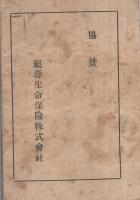 協賛
福壽生命保險株式會社